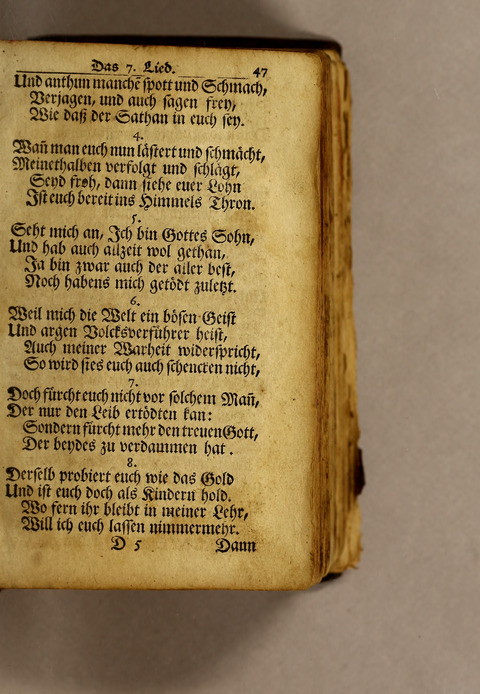 Das 7. Lied. 47
Und anthun manchē spott und Schmach,
Verjagen, und auch sagen frey,
Wie daß der Sathan in euch sey.
4.
Wañ man euch nun lästert und schmächt,
Meinethalben verfolgt und schlägt,
Seyd froh, dann siehe euer Lohn
Ist euch bereit ins Himmels Thron.
5.
Seht mich an, Ich bin Gottes Sohn,
Und hab auch allzeit wol gethan,
Ja bin zwar auch der aller best,
Noch habens mich getödt zuletzt.
6.
Weil mich die Welt ein bösen Geist
Und argen Volcksverführer heist,
Auch meiner Warheit widerspricht,
So wird sies euch auch schencken nicht,
7.
Doch fürcht euch nicht vor solchem Mañ,
Der nur den Leib ertödten kan:
Sondern fürcht mehr den treuen Gott,
Der beydes zu verdammen hat.
8.
Derselb probiert euch wie das Gold
Und ist euch doch als Kindern hold.
Wo fern ihr bleibt in meiner Lehr,
Will ich euch lassen nimmermehr.
D 5 Dann